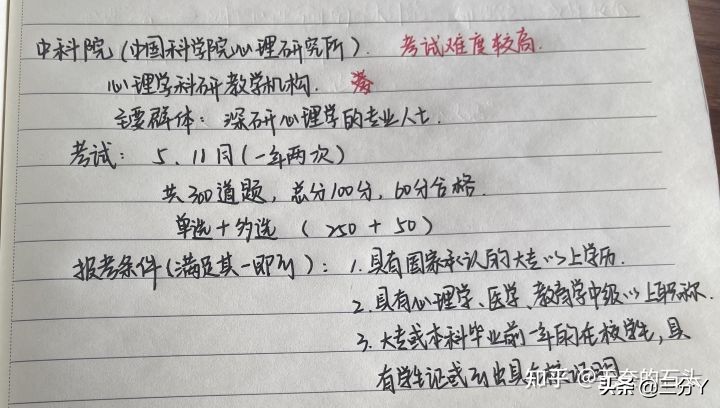 中科院(中国科学院心理研究所). 考试难度较高.
心理学科研教学机构.
主要群体: 深研心理学的专业人士.
考试: 5、11月(一年两次)
共300道题, 总分100分, 60分合格.
单选+多选 (250+50)
报考条件(满足其一即可): 1.具有国家承认的大专以上学历.
2.具有心理学、医学、教育学中级以上职称.
3.大专或本科毕业前一年的在校学生, 具
有学生证或可出具在校证明
知乎 @天奇的石头
头条 @三分Y